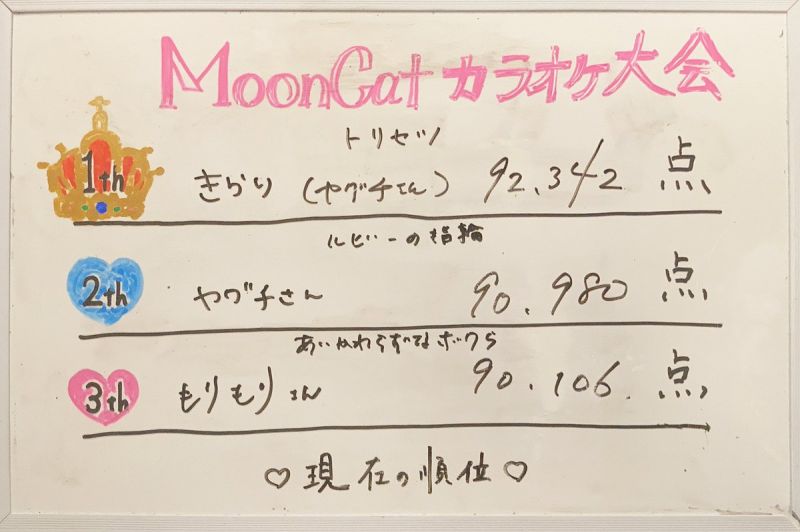 MoonCat カラオケ大会
トリセツ
1th きらり (ヤグチさん) 92.342 点
ルビーの指輪
2th ヤグチさん 90.980 点
あいかわらずなボクら
3th もりもりさん 90.106. 点
♡現在の順位♡